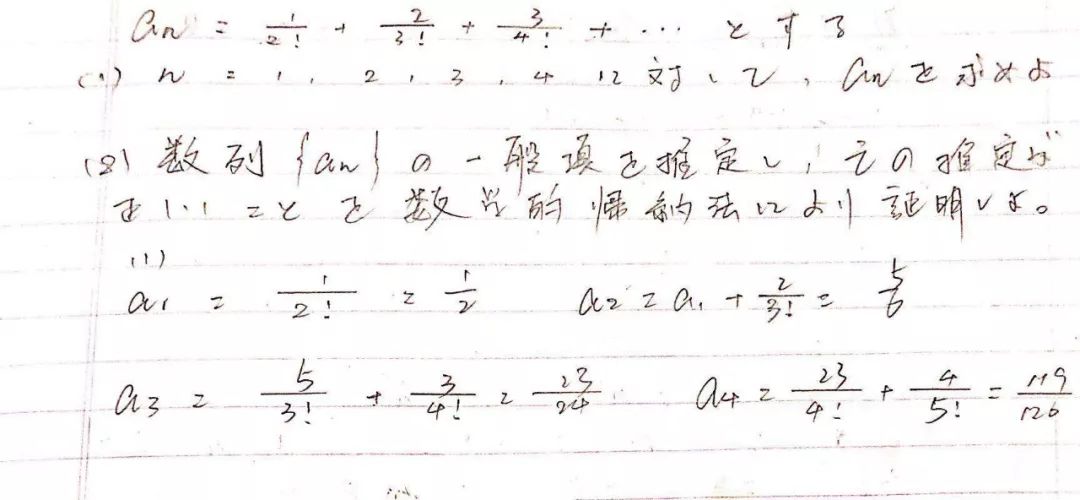 an = 1/2! + 2/3! + 3/4! + … とする
(1) n = 1, 2, 3, 4 に対して, an を求めよ
(2) 数列{an}の一般項を推定し, その推定が
正しいことを数学的帰納法により証明しよ。
(1)
a1 = 1/2! = 1/2  a2 = a1 + 2/3! = 5/6
a3 = 5/3! + 3/4! = 23/24  a4 = 23/4! + 4/5! = 119/120